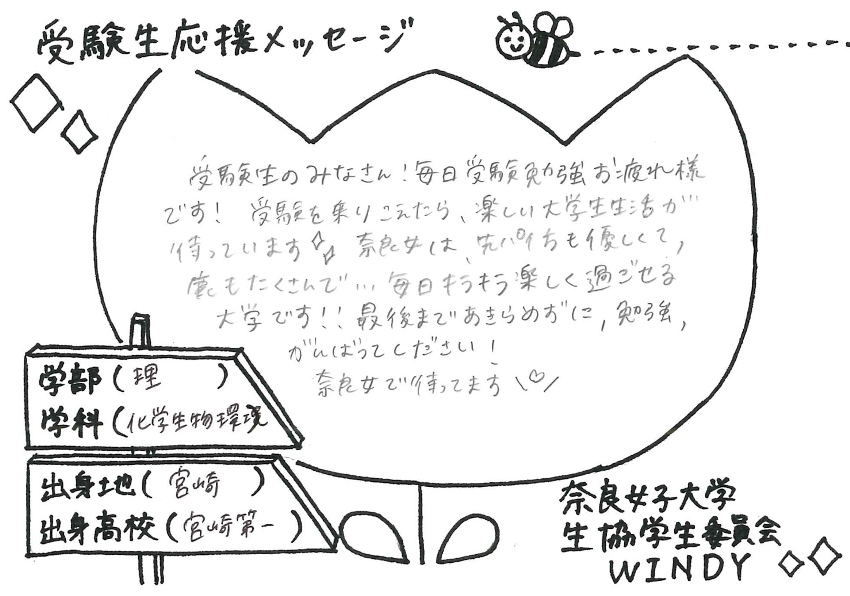 受験生応援メッセージ
受験生のみなさん!毎日受験勉強お疲れ様
です! 受験を乗りこえたら、楽しい大学生生活が
待っています 奈良女は、先パイ方も優しくて,
鹿もたくさんで…毎日キラキラ楽しく過ごせる
大学です!!最後まであきらめずに,勉強,
がんばってください!
奈良女で待ってます\♡/
学部(理)
学科(化学生物環境
出身地(宮崎)
出身高校(宮崎第一)
奈良女子大学
生協学生委員会
WINDY